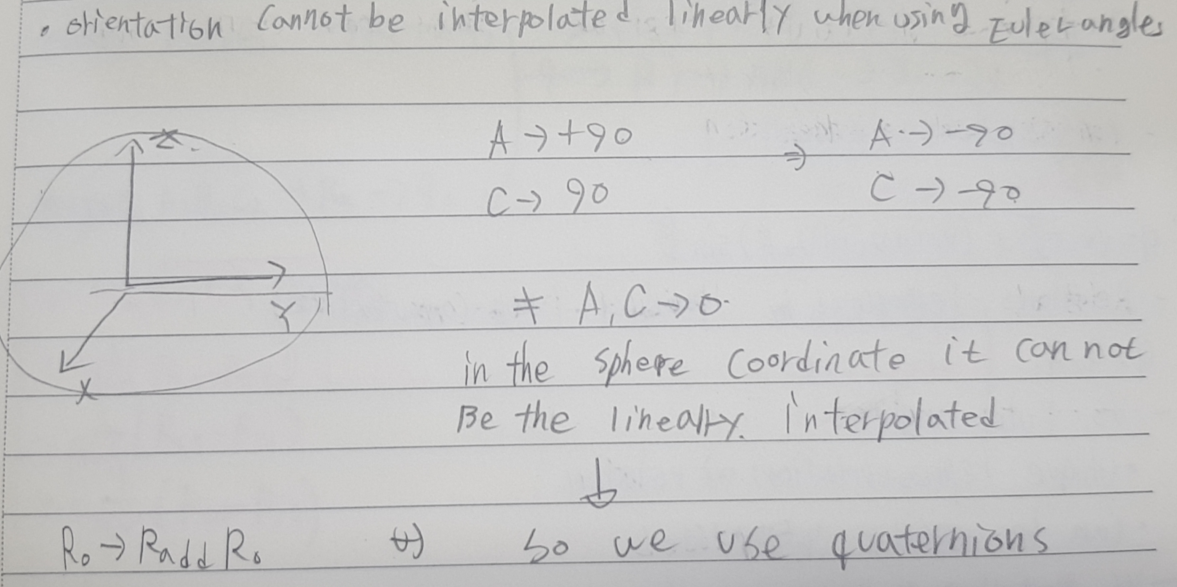 • orientation cannot be interpolated linearly when using Euler angles
Z.
A → +90 ⇒ A → -90
C → 90 C → -90
Y
≠ A, C → 0.
X
in the sphere coordinate it can not
Be the linearly. interpolated
↓
R₀ → Radd R₀ so we use quaternions